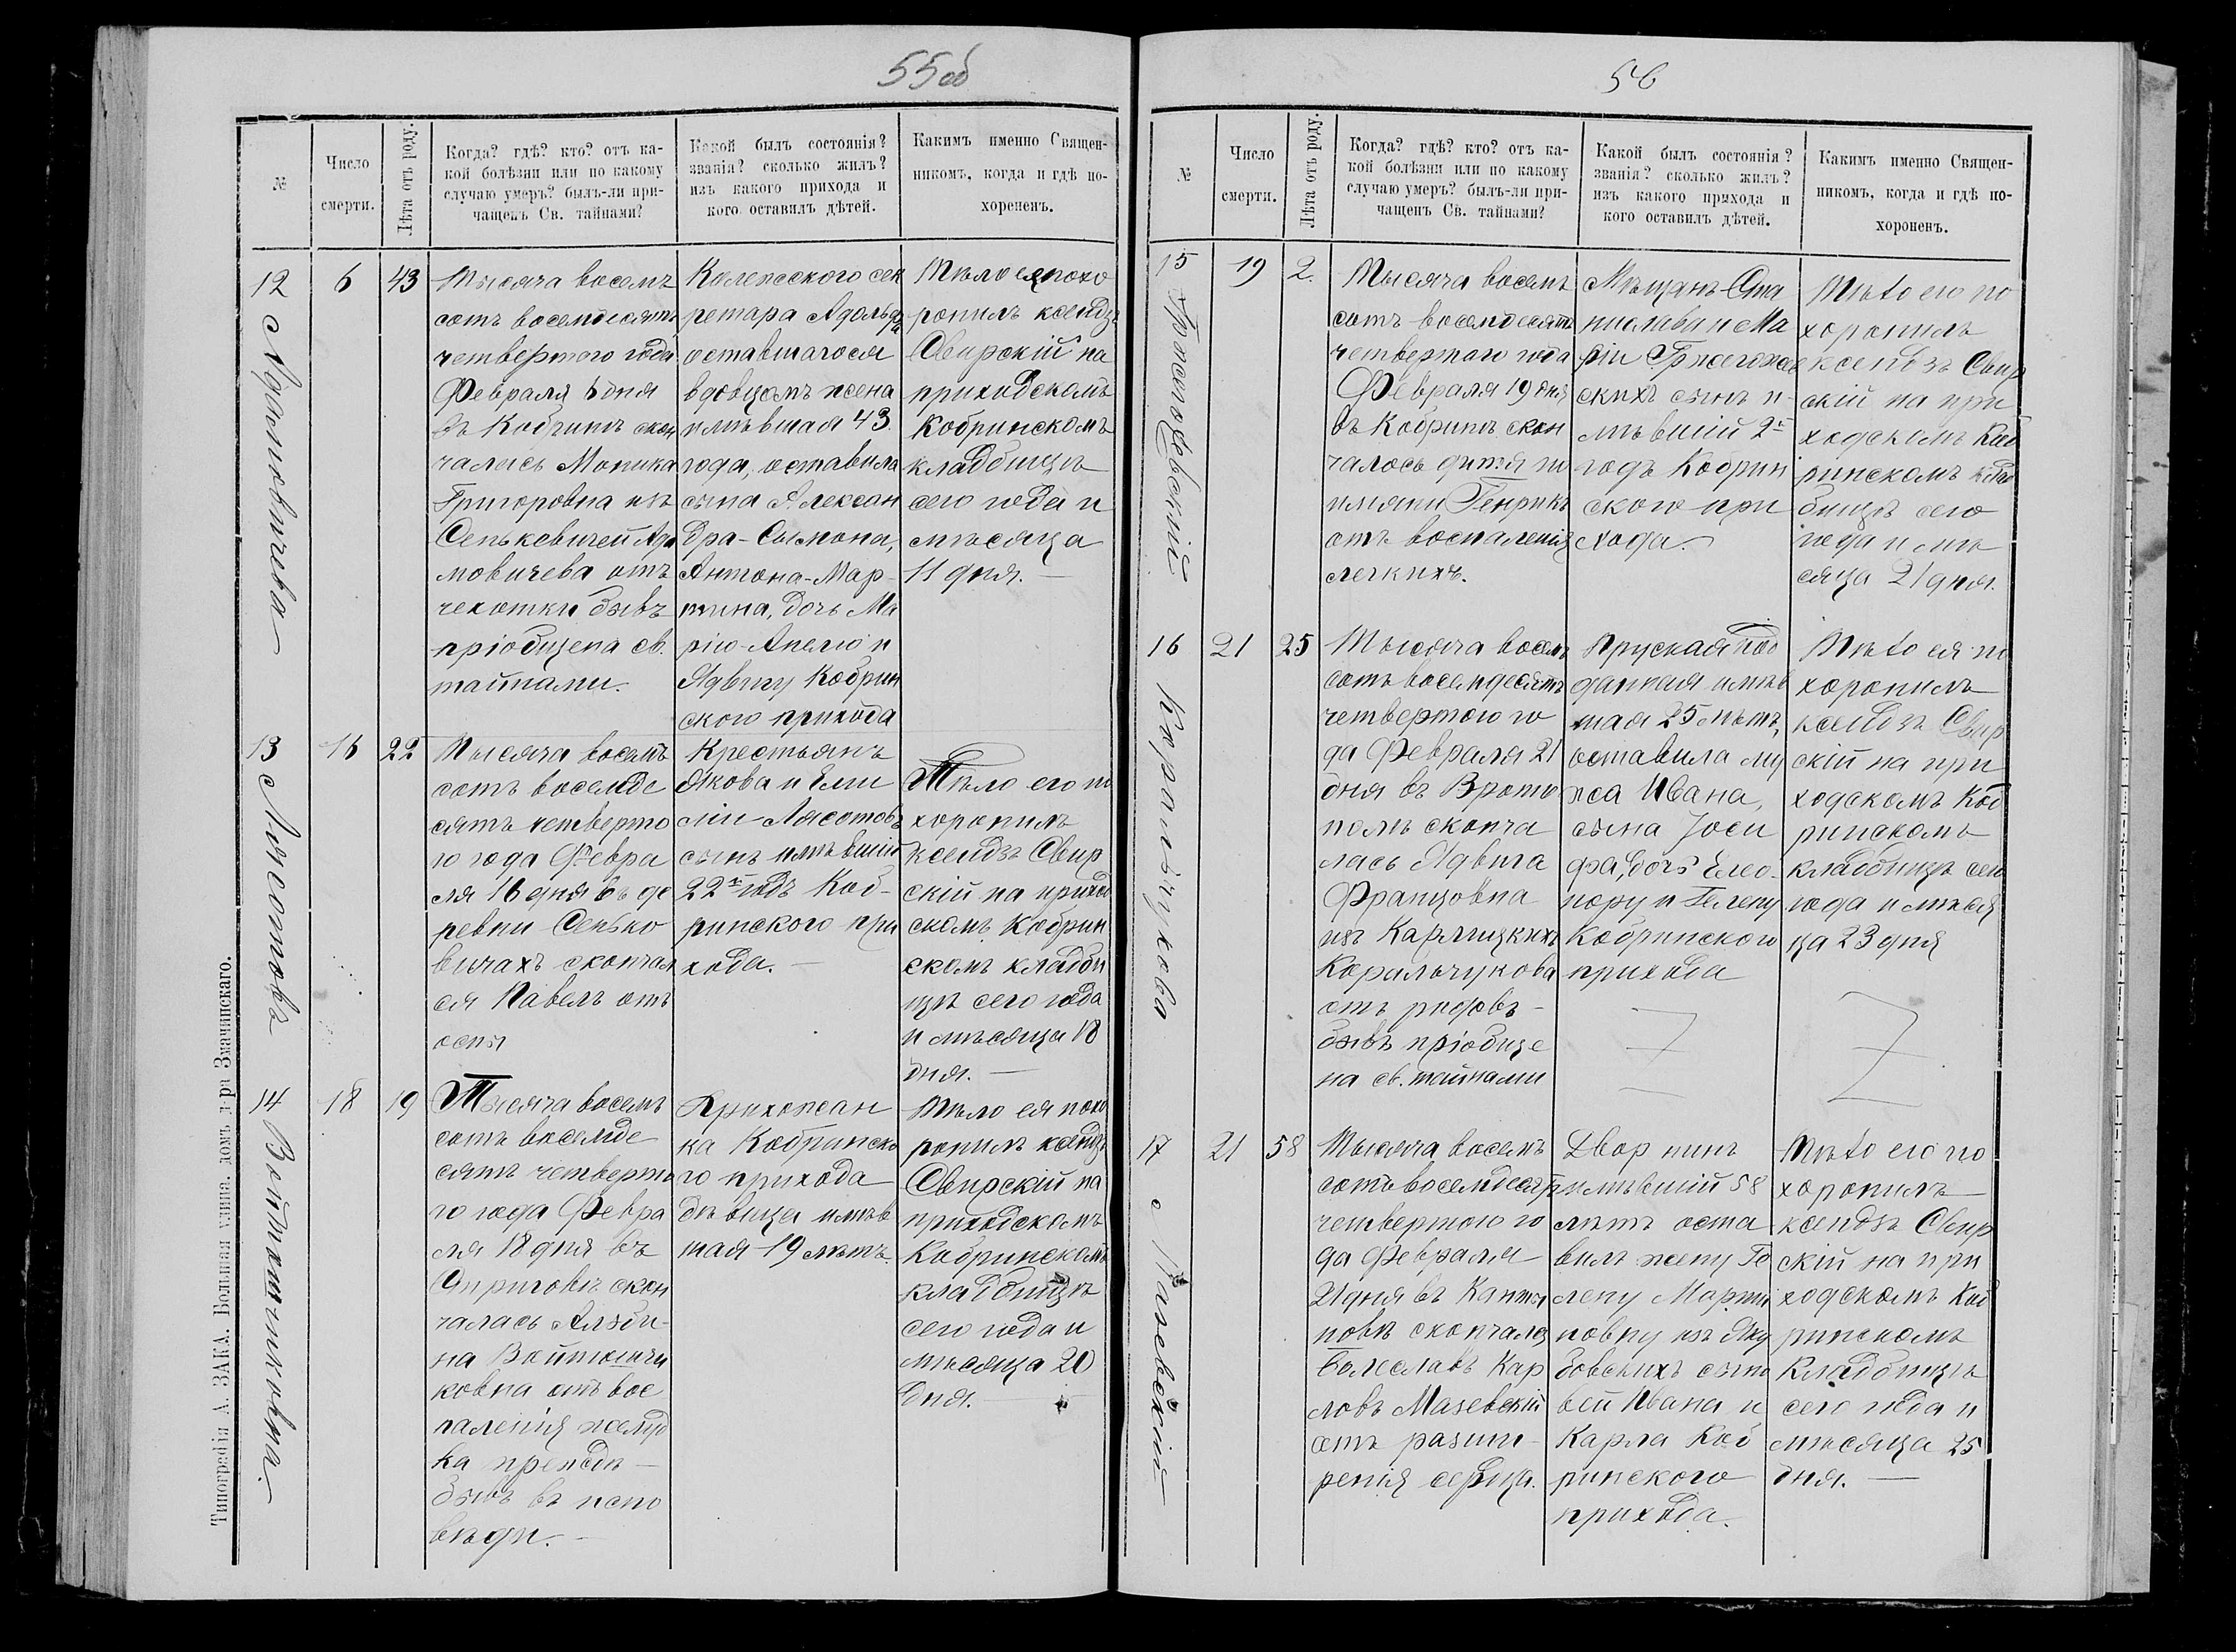 55об
№
Число
смерти.
Лѣта отъ роду.
Когда? гдѣ? кто? отъ ка-
кой болѣзни или по какому
случаю умеръ? былъ-ли при-
чащенъ Св. тайнами?
Какой былъ состоянія?
званія? сколько жилъ?
изъ какого прихода и
кого оставилъ дѣтей.
Какимъ именно Священ-
никомъ, когда и гдѣ по-
хорененъ.
12
Адамовичева
6
43
Тысяча восемъ
сотъ восемдесятъ
четвертого года
Февраля 6 дня
въ Кобринѣ скон
чалась Моника
Григоровна изъ
Сенькевичей Ада
мовичева отъ
чехотки бывъ
пріобщена св.
тайнами.
Колежского сек
ретара Адольфа
оставшагося
вдовцомъ жена
имѣвшая 43
года, оставила
сына Алексан
дра-Сымона,
Антона-Мар-
тина, дочь Ма
рію-Анелю и
Ядвигу Кобрин
ского прихода
Тѣло ея похо
ронилъ ксендзъ
Свирскій на
приходскомъ
Кобринскомъ
кладбищѣ
сего года и
мѣсяца
11 дня.
13
Лясотовъ
16
22
Тысяча восемъ
сотъ восемде
сятъ четверто
го года Февра
ля 16 дня въ де
ревни Сенько
вичахъ скончал
ся Павелъ отъ
оспы
Крестьянъ
Якова и Еми
ліи Лясотовъ
сынъ имѣвшій
22й годъ Коб-
ринского при
хода.
Тѣло его по
хоронилъ
ксендзъ Свир
скій на приход
скомъ Кобрин
скомъ кладби
щѣ сего года
и мѣсяца 18
дня.
14
Войтюшиковна.
18
19
Тысяча восемъ
сотъ восемде
сятъ четверто
го года Февра
ля 18 дня въ
скон
чалась Альби-
на Войтюши
ковна отъ вос
паленія желуд
ка
бывъ въ испо
вѣди.
Прихожан
ка Кобринско
го прихода
дѣвица имѣв
шая 19 лѣтъ.
Тѣло ея похо
ронилъ ксендзъ
Свирскій на
приходскомъ
Кобринскомъ
кладбищѣ
сего года и
мѣсяца 20
дня.
Типографія А. ЗАКА. Вольшая улица. домъ д-ра Значинскаго.
56
№
Число
смерти.
Лѣта отъ роду.
Когда? гдѣ? кто? отъ ка-
кой болѣзни или по какому
случаю умеръ? былъ-ли при-
чащенъ Св. тайнами?
Какой былъ состоянія?
званія? сколько жилъ?
изъ какого прихода и
кого оставилъ дѣтей.
Какимъ именно Священ-
никомъ, когда и гдѣ по-
хороненъ.
15
Гржегоржевскій
19
2.
Тысяча восемъ
сотъ восемдесятъ
четвертаго года
Февраля 19 дня
въ Кобринѣ скон
чалось дитя по
имяни Генрикъ
отъ воспаленія
легкихъ.
Мѣщанъ Ста
нислава и Ма
ріи Гржегоржев
скихъ сынъ и-
мѣвшій 2й
годъ Кобрин
ского при
хода.
Тѣло его по
хоронилъ
ксендзъ Свир
скій на при
ходскомъ Коб
ринскомъ клад
бищѣ сего
года и мѣ
сяца 21 дня.
16
Коральчукова
21
25
Тысяча восемъ
сотъ восемдесятъ
четвертого го
да Февраля 21
дня въ
полѣ сконча
лась Ядвига
Францовна
изъ Карлицкихъ
Коральчукова
отъ родовъ-
бывъ пріобще
на св. тайнами
Прускаяпод
данная имѣв
шая 25 лѣтъ,
оставила му
жа Ивана,
сына Іоси
фа, дочь Елео-
нору и Гелену
Кобринского
прихода
Тѣло ея по
хоронилъ
ксендзъ Свир
скій на при
ходскомъ Коб
ринскомъ
кладбищѣ сего
года и мѣся
ца 23 дня
17
Мазевскій
21
58
Тысяча восемъ
сотъ восемдесят
четвертого го
да Февраля
21 дня въ Кантя
новѣ скончался
Болеславъ Кар
ловъ Мазевскій
отъ разши-
ренія сердца.
Дворянинъ
имѣвшій 58
лѣтъ оста
вилъ жену Ге
лену Марти
новну изъ Яку
бовскихъ сыно
вей Ивана и
Карла Коб
ринского
прихода.
Тѣло его по
хоронилъ
ксендзъ Свир
скій на при
ходскомъ Коб
ринскомъ
кладбищѣ
сего года и
мѣсяца 25
дня.